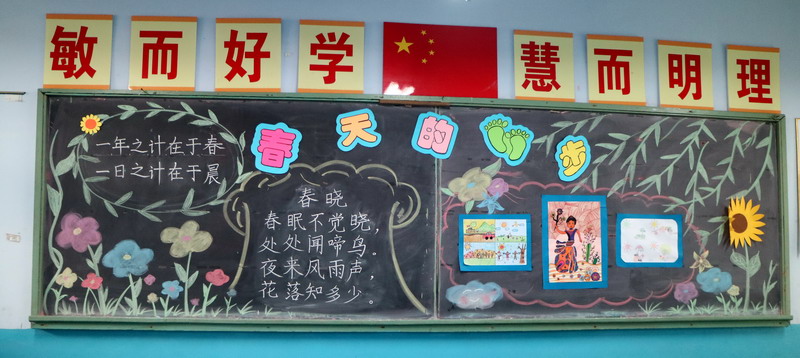 敏而好学 慧而明理
春天的步
一年之计在于春
一日之计在于晨
春晓
春眠不觉晓，
处处闻啼鸟。
夜来风雨声，
花落知多少。